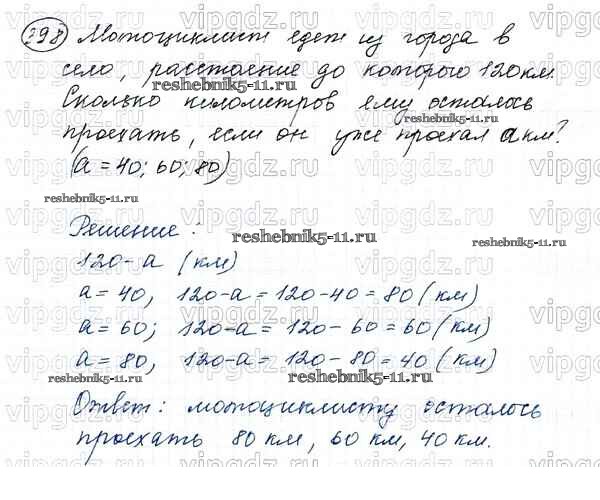 298) Мотоциклист едет из города в
село, расстояние до которого 120 км.
Сколько километров ему осталось
проехать, если он уже проехал a км?
(a = 40; 60; 80)
Решение:
120-a (км)
a = 40, 120-a = 120-40 = 80 (км)
a = 60; 120-a = 120-60 = 60 (км)
a = 80, 120-a = 120-80 = 40 (км)
Ответ: мотоциклисту осталось
проехать 80 км, 60 км, 40 км.
vipgdz.ru
reshebnik5-11.ru